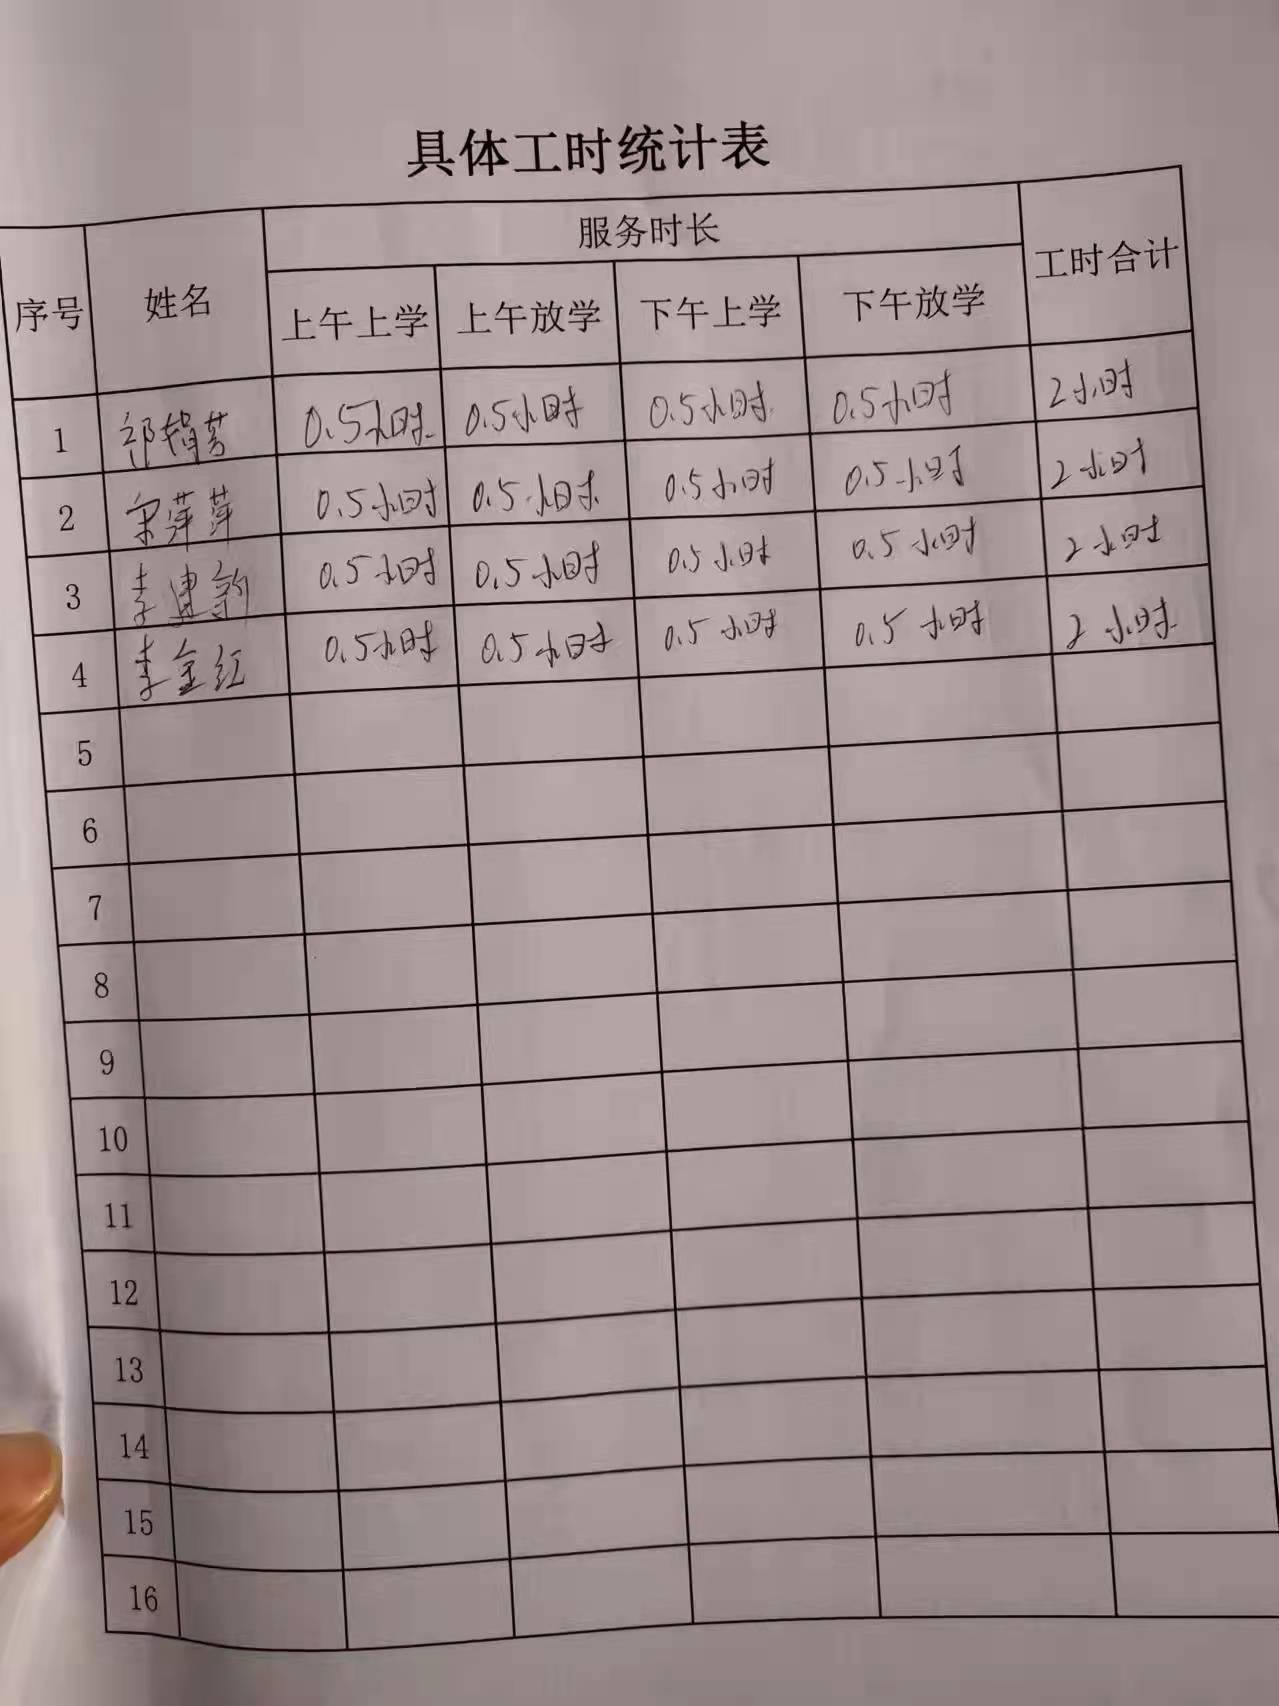 具体工时统计表
序号 姓名 服务时长 工时合计
上午上学 上午放学 下午上学 下午放学
1 0.5小时 0.5小时 0.5小时 0.5小时 2小时
2 宋萍萍 0.5小时 0.5小时 0.5小时 0.5小时 2小时
3 李建 0.5小时 0.5小时 0.5小时 0.5小时 2小时
4 李金红 0.5小时 0.5小时 0.5小时 0.5小时 2小时
5
6
7
8
9
10
11
12
13
14
15
16